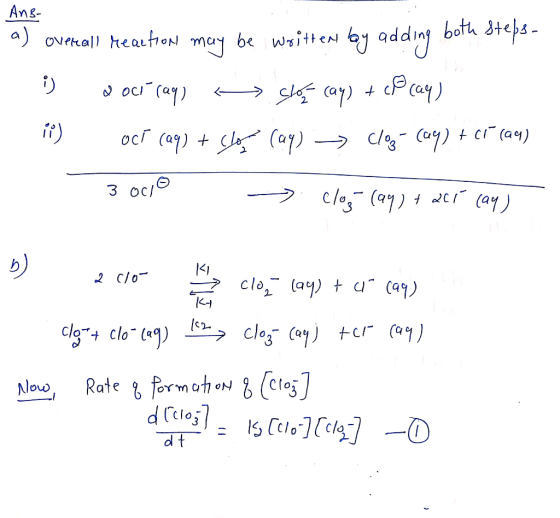 Ans-
a) overall reaction may be written by adding both steps-
i) 2 OCl⁻ (aq) ⟷ ClO₂⁻ (aq) + Cl⊖ (aq)
ii) OCl⁻ (aq) + ClO₂⁻ (aq) ⟶ ClO₃⁻ (aq) + Cl⁻ (aq)
3 OCl⊖ ⟶ ClO₃⁻ (aq) + 2Cl⁻ (aq)
b) 2 ClO⁻ ⇌ ClO₂⁻ (aq) + Cl⁻ (aq)
K1
K-1
ClO₂⁻ + ClO⁻ (aq) ⟶ ClO₃⁻ (aq) + Cl⁻ (aq)
K2
Now, Rate of formation of [ClO₃⁻]
d[ClO₃⁻]/dt = K₂ [ClO⁻] [ClO₂⁻] —①